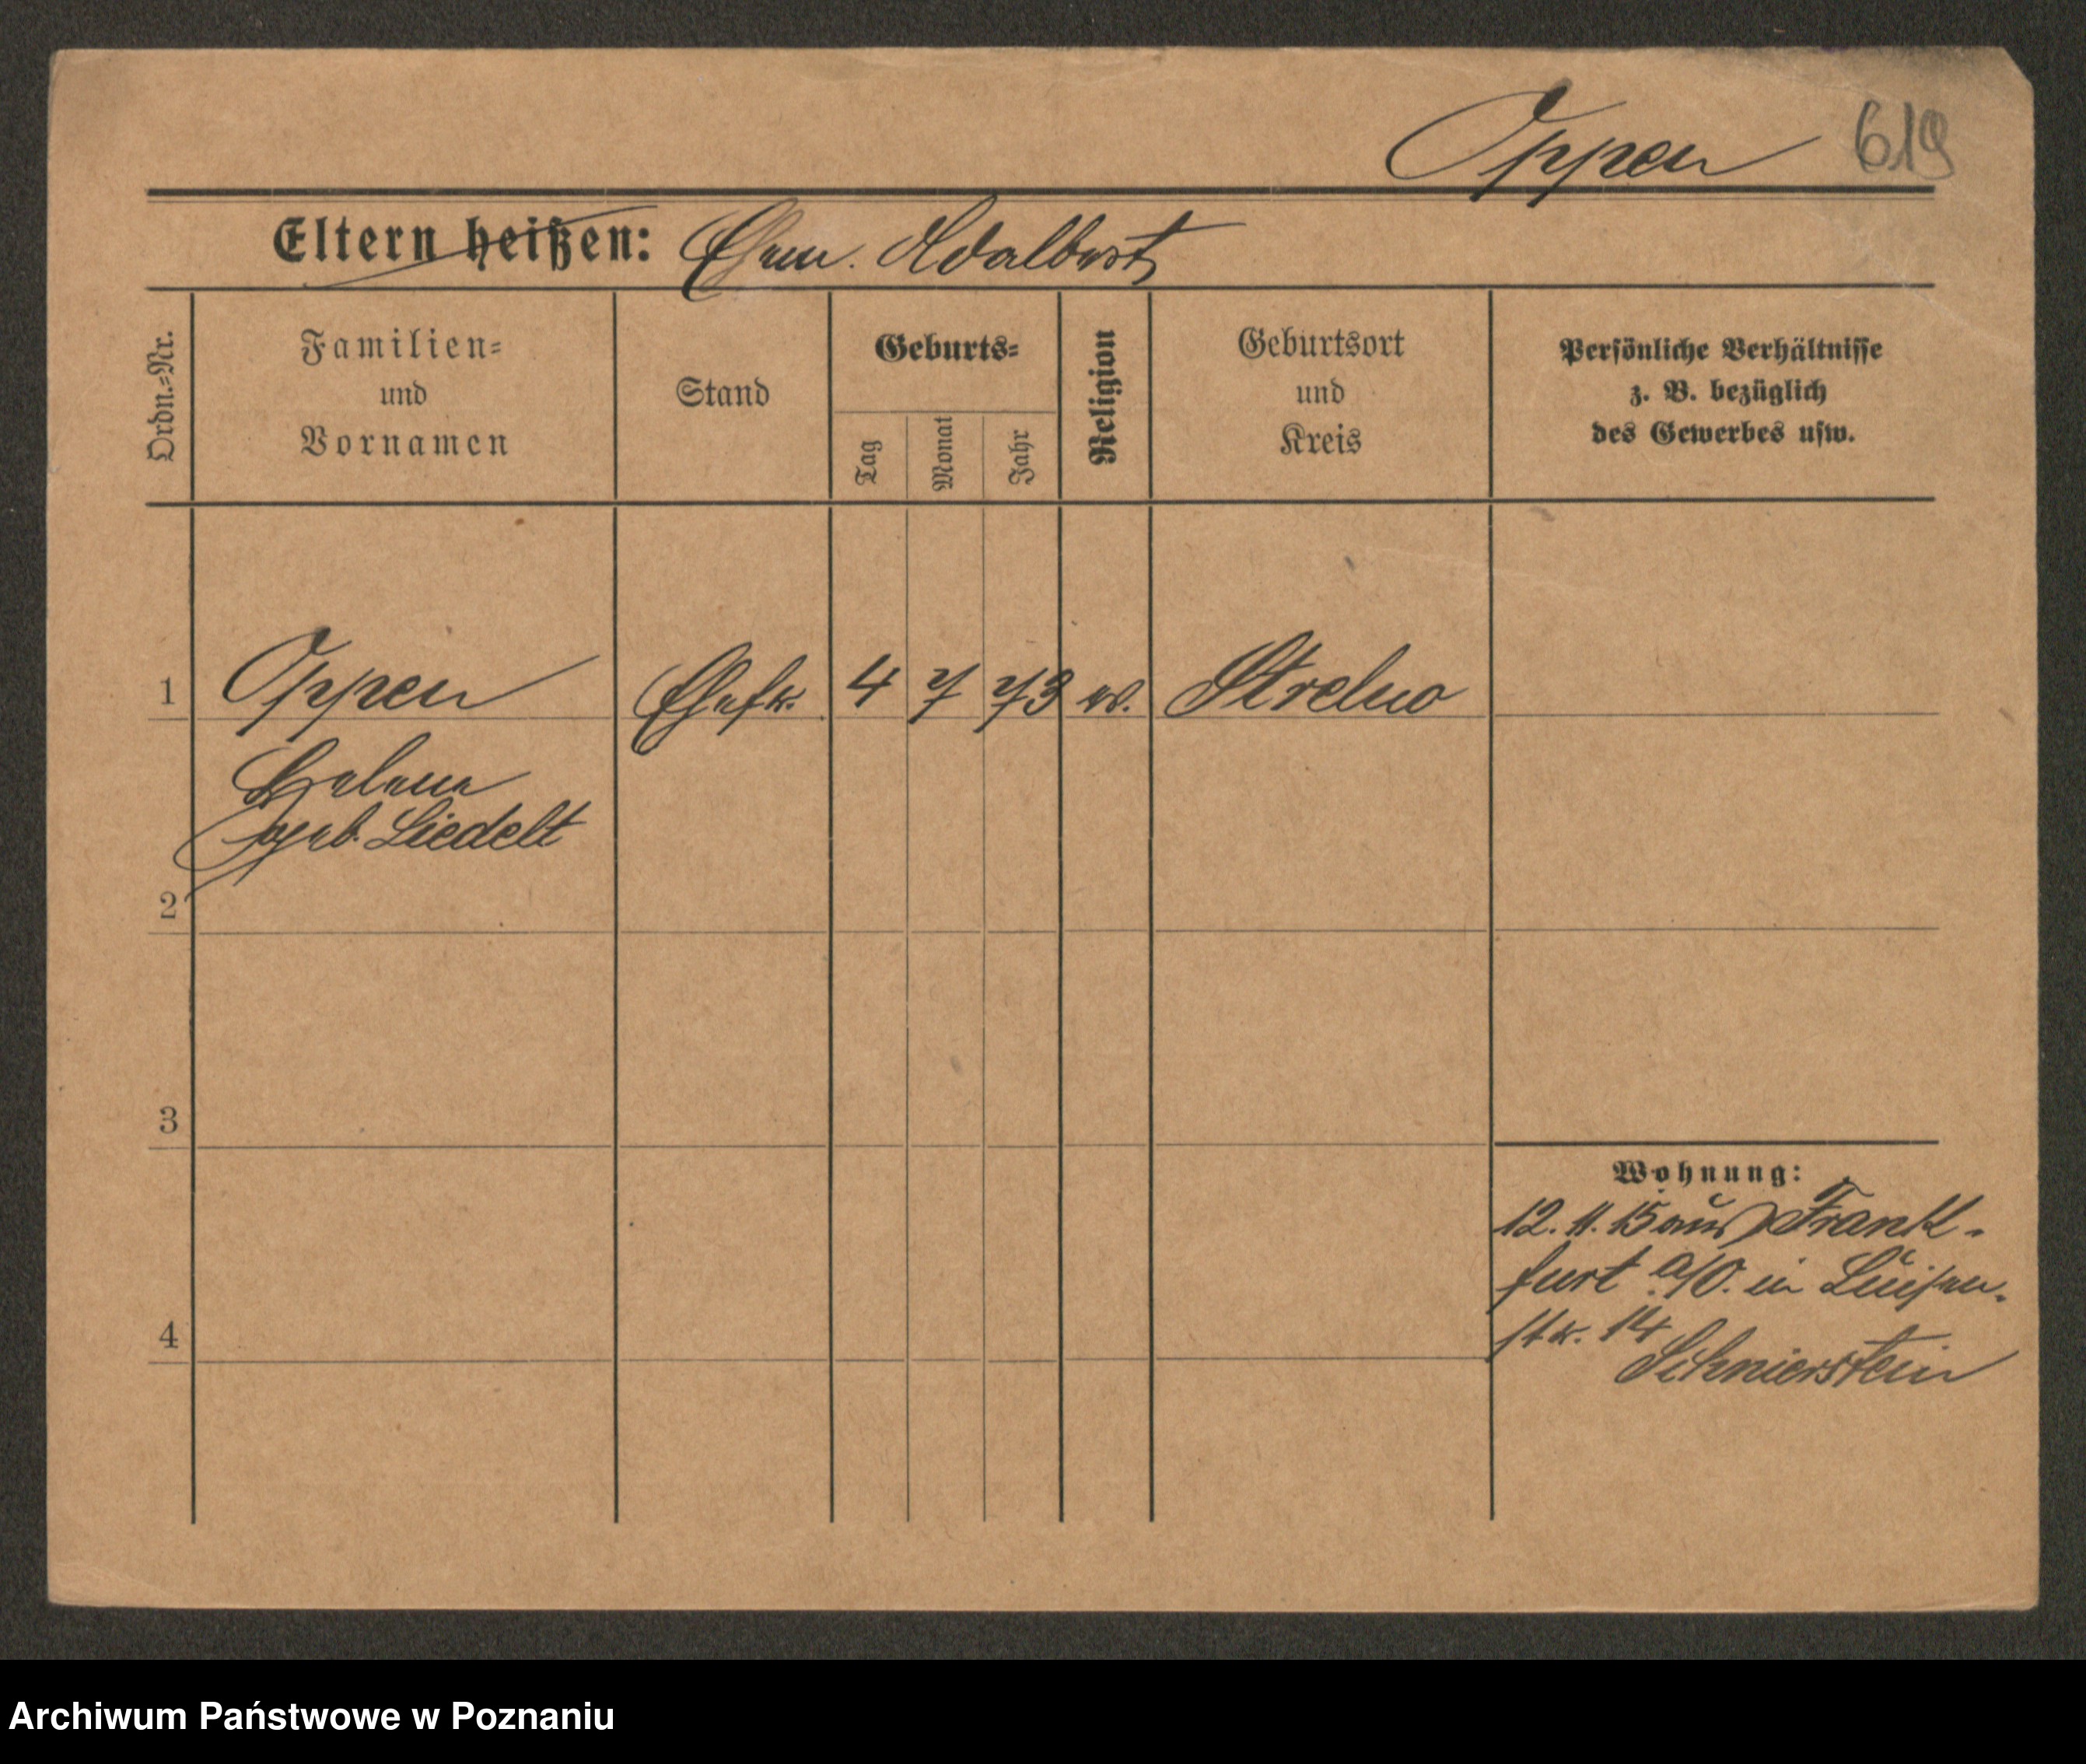 Oppen 619
Eltern heißen: Ehem. Adalbert
Ordn.=Nr.
Familien=
und
Vornamen
Stand
Geburts=
Tag
Monat
Jahr
Religion
Geburtsort
und
Kreis
Persönliche Verhältnisse
z. B. bezüglich
des Gewerbes usw.
1 Oppen Ehefr. 4 7 73 ev. Strelno
Helene
geb. Liedelt
2
3
Wohnung:
12. 11. 15 aus Frank-
furt a/O. in Luisen-
4 str. 14
Schnierstein
Archiwum Państwowe w Poznaniu